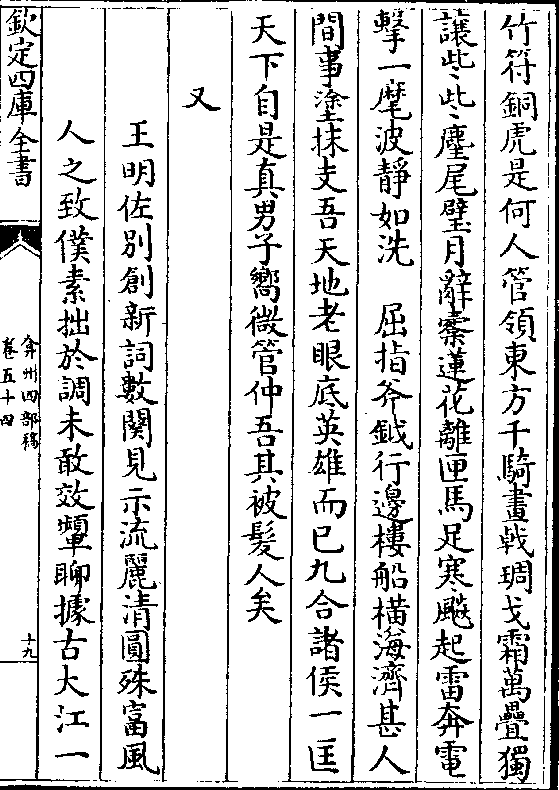 竹符銅虎是何人管領東方千騎畫戟琱戈霜萬疊獨
讓些些麈尾璧月辭橐蓮花離匣馬足寒飈起雷奔電
擊一麾波靜如洗　屈指斧鉞行邊樓船橫海濟甚人
間事塗抹支吾天地老眼底英雄而已九合諸侯一匡
天下自是真男子嚮微管仲吾其被髮人矣
又
王明佐別創新詞數闋見示流麗清圓殊富風
人之致僕素拙於調未敢效顰聊據古大江一
欽定四庫全書
弇州四部稿
卷五十四
十九